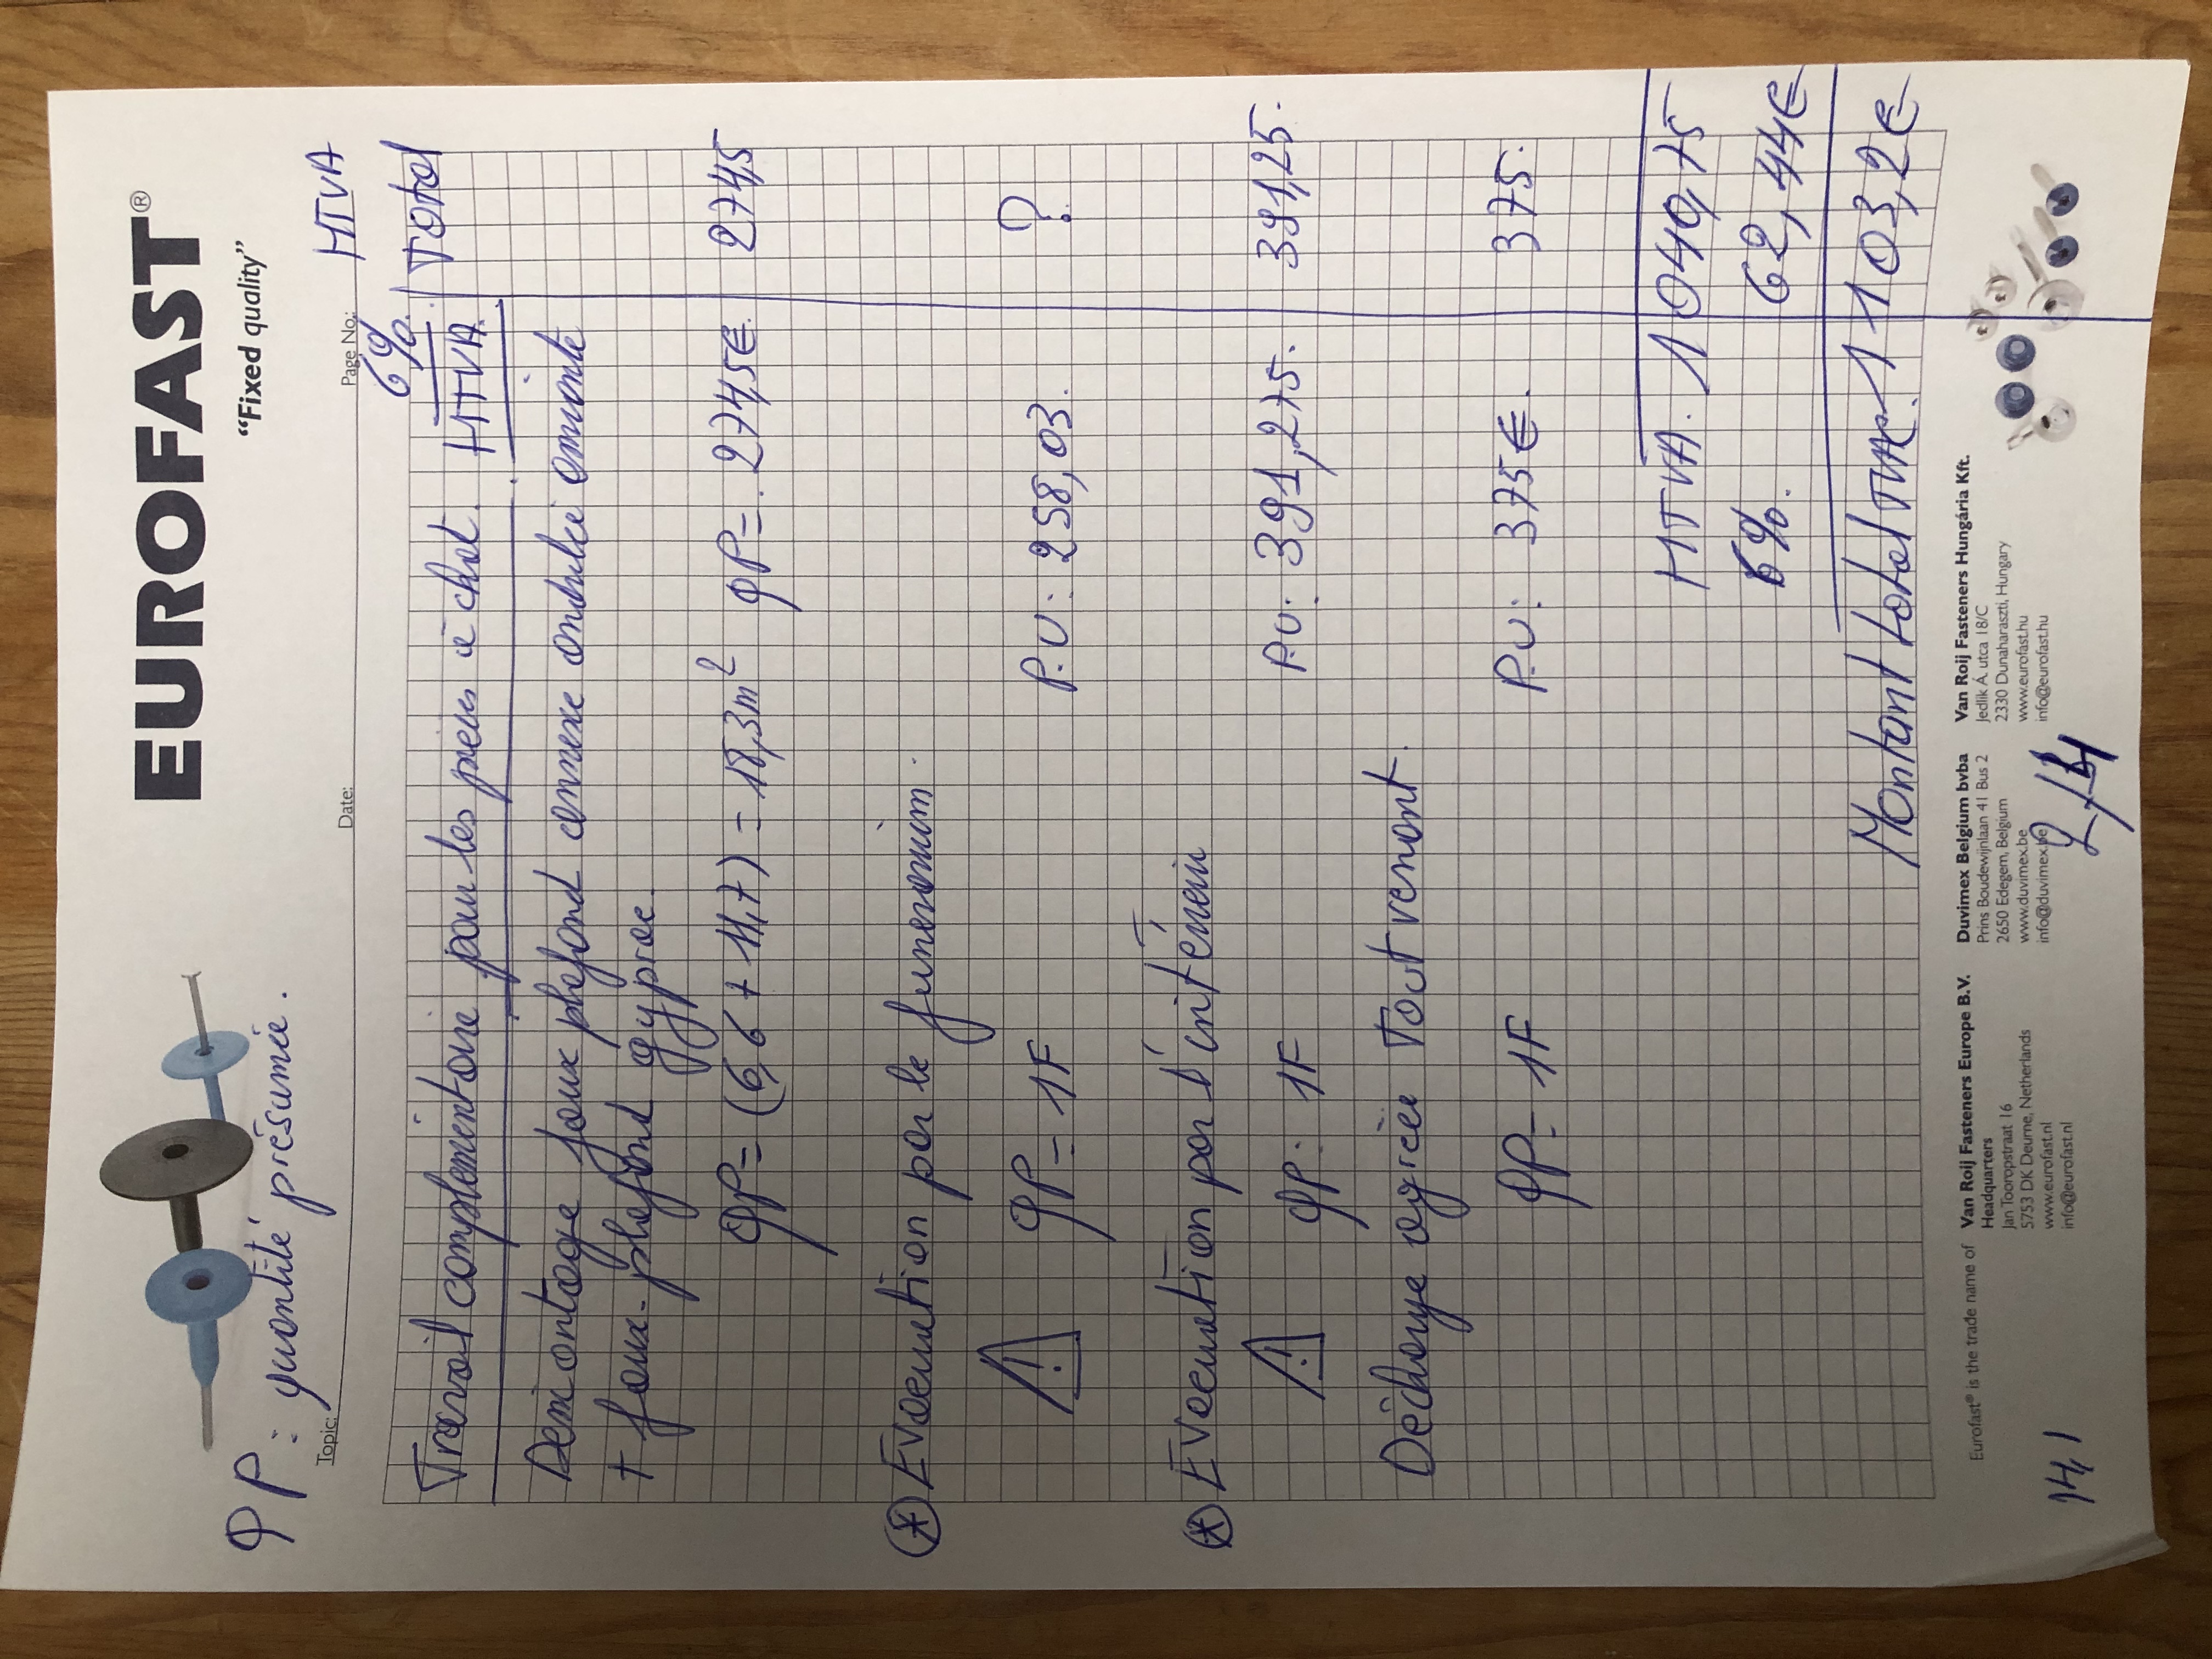 EUROFAST®
"Fixed quality"
QP: quantité présumée.
Topic:
Date:
Page No.:
HTVA
6%
Travail complémentaire pour les pièces à chat. HTVA. Total
Demontage faux plafond connexe ondulée amiante
+ faux-plafond gyproc.
QP= (6,6 + 11,7) = 18,3m² QP= 274,5€. 274,5
* Evacuation par le funerarium.
! QP= 1F P.U: 258,03. ?
* Evacuation par l'intérieur
! QP: 1F P.U: 391,275. 391,25.
Décharge agréée Tout venant.
QP= 1F P.U: 375€. 375.
HTVA. 1 040,75
6%. 62,44€
Montant total TVAC. 1 103,2€
Eurofast® is the trade name of
Van Roij Fasteners Europe B.V.
Headquarters
Jan Tooropstraat 16
5753 DK Deurne, Netherlands
www.eurofast.nl
info@eurofast.nl
Duvimex Belgium bvba
Prins Boudewijnlaan 41 Bus 2
2650 Edegem, Belgium
www.duvimex.be
info@duvimex.be
Van Roij Fasteners Hungária Kft.
Jedlik Á. utca 18/C
2330 Dunaharaszti, Hungary
www.eurofast.hu
info@eurofast.hu
14,1